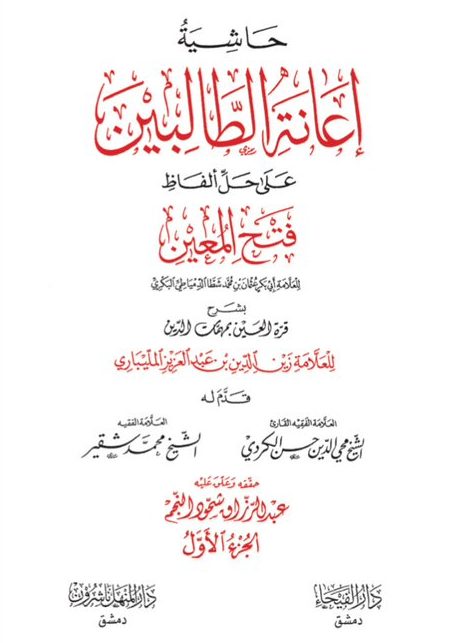 حَاشِيَةُ
إِعَانَةِ الطَّالِبِيْنَ
عَلَى حَلِّ أَلْفَاظِ
فَتْحِ المُعِيْنِ
لِلْعَلَّامَة أَبِي بَكْر عُثْمَان بْن مُحَمَّد شَطَا الدِّمْيَاطِيِّ البَكْرِيّ
بشرح
قرة العين بمهمّات الدّين
لِلْعَلَّامَةِ زَيْنِ الدِّيْنِ بْنِ عَبْدِ العَزِيْزِ المَلِيبَارِي
قَدَّمَ لَه
العَلَّامَة الفَقِيه القَارِئ
العَلَّامَة الفَقِيه
الشَّيْخ مُحْيِي الدِّيْن حَسَن الكُرْدِي
الشَّيْخ مُحَمَّد شُقَيْر
حَقَّقَه وَعَلَّق عَلَيْه
عَبْد الرَّزَّاق شُحُود النَّجْم
الجُزْءُ الأَوَّلُ
دَارُ الفَيْحَاء
دَارُ المَنْهَل نَاشِرُون
دمشق
دمشق